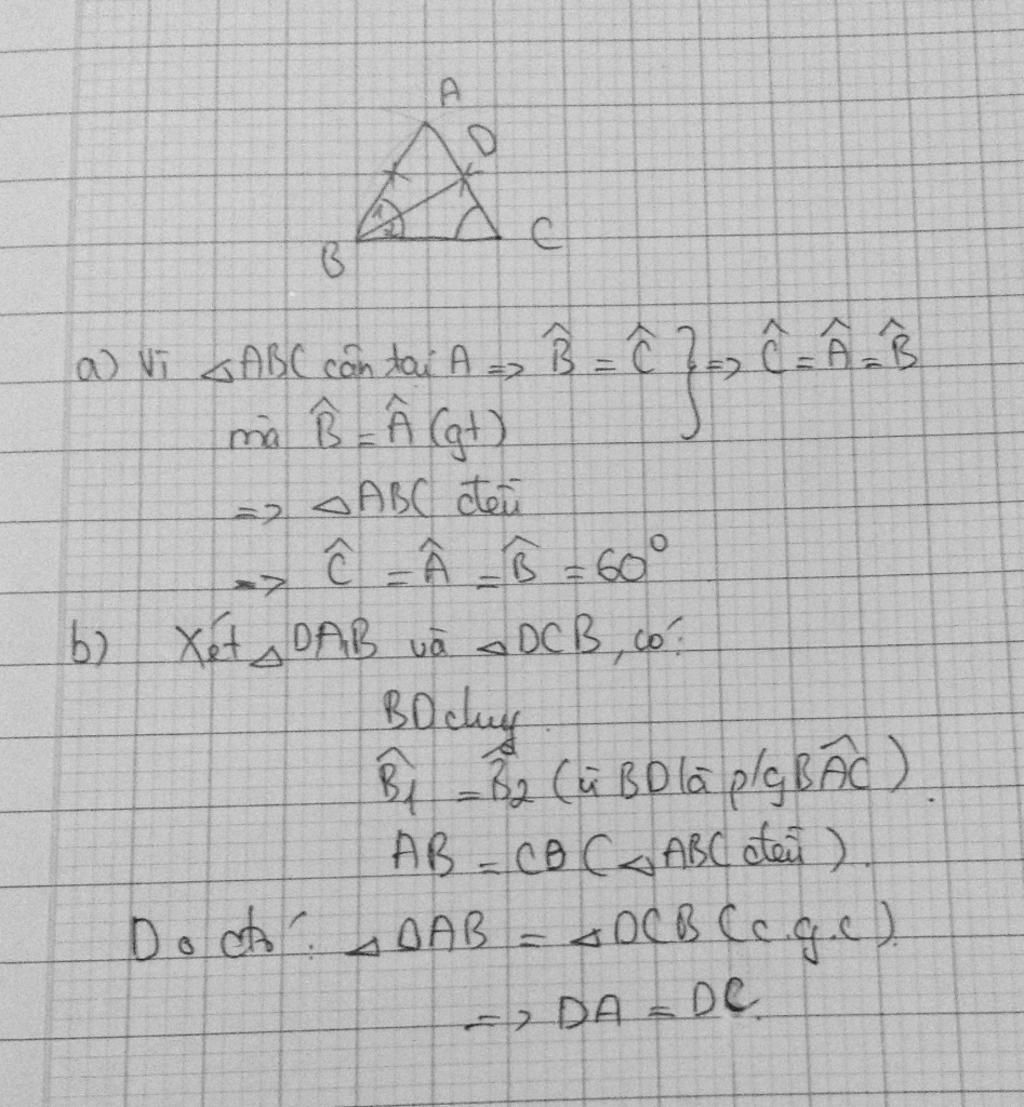 A
D
1
2
B
C
a) Vì △ABC cân tại A => B̂ = Ĉ } => Ĉ = Â = B̂
mà B̂ = Â (gt)
=> △ABC đều
=> Ĉ = Â = B̂ = 60°
b) Xét △DAB và △DCB, có:
BD chung
B̂1 = B̂2 (vì BD là p/g BÂC).
AB = CB (△ABC đều).
Do đó: △DAB = △DCB (c.g.c).
=> DA = DC.